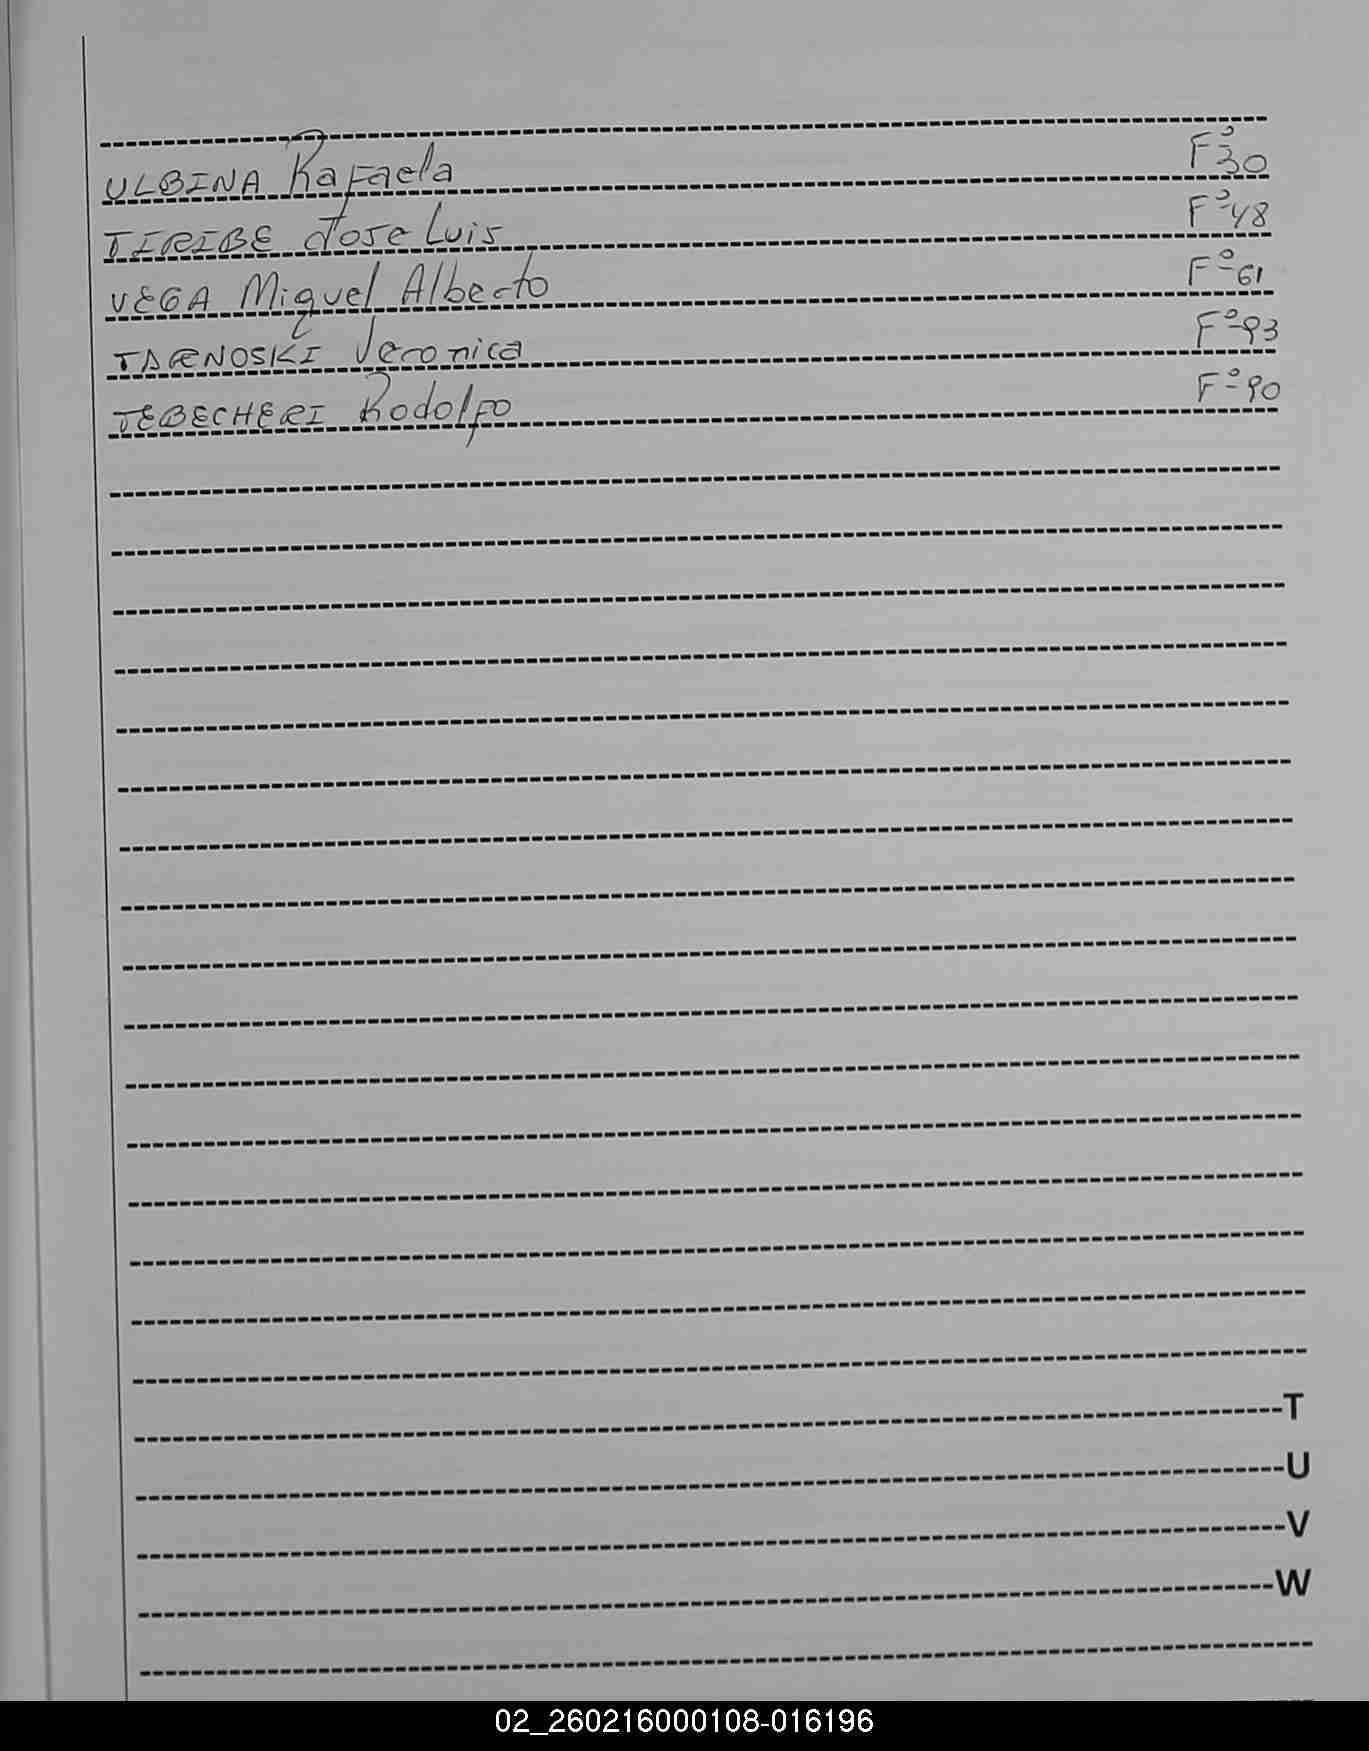 ULBINA Rafaela F° 30
TIRIBE Jose Luis F° 48
VEGA Miguel Alberto F° 61
TARNOSKI Veronica F° 93
TEBECHERI Rodolfo F° 90
T
U
V
W
02_260216000108-016196